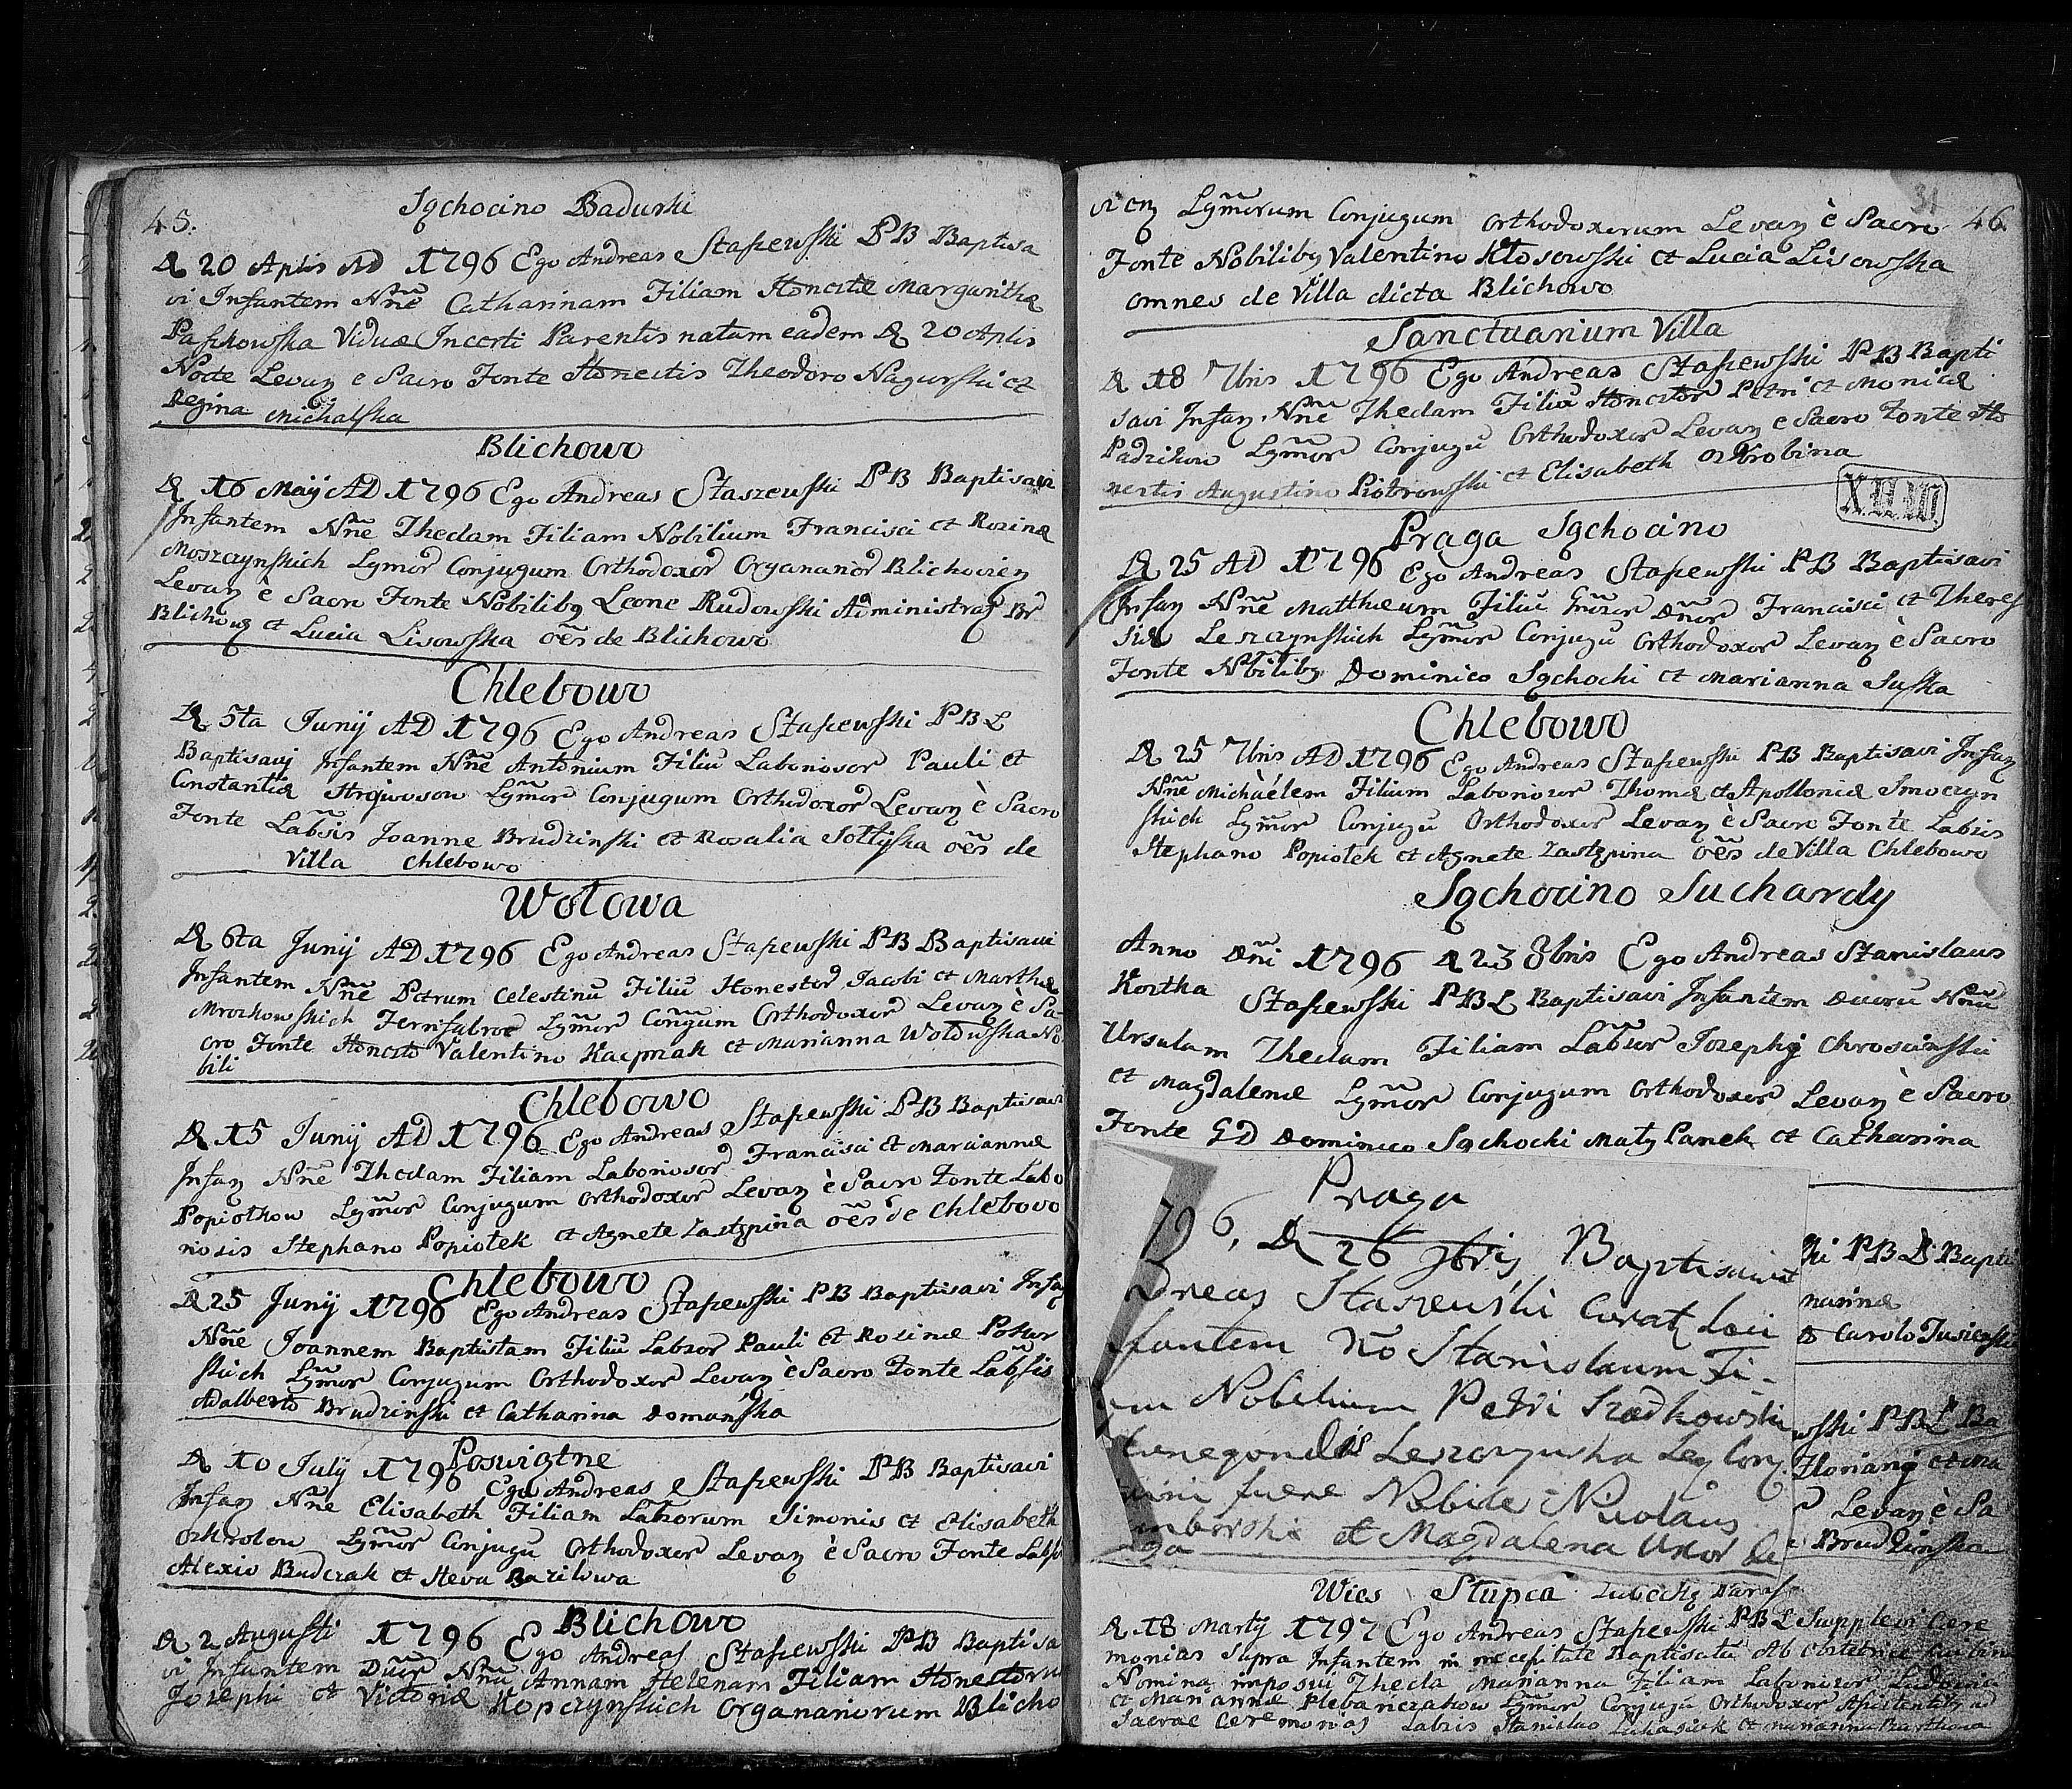 45.
Sąchocino Badurki
D 20 Aplis AD 1796 Ego Andreas Staszewski PB Baptisa
vi Infantem Nñe Catharinam Filiam Honestæ Margarithæ
Paszkowska Viduæ Incerti Parentis natam eadem D 20 Aplis
Nocte Levan e Sacro Fonte Honestis Theodoro Nagurski et
Regina Michalska
Blichowo
D 16 Maij AD 1796 Ego Andreas Staszewski PB Baptisavi
Infantem Nñe Theclam Filiam Nobilium Francisci et Rozinæ
Moszczynskich Lgmor Conjugum Orthodoxor Organarior Blichovien
Levan è Sacro Fonte Nobilibq Leone Rudowski Administraq Br
Blichowq et Lucia Lisowska oẽs de Blichowo
Chlebowo
D 5ta Junij AD 1796 Ego Andreas Staszewski PBL
Baptisavi Infantem Nñe Antonium Filiũ Laboriosor Pauli et
Constantiæ Strojwosow Lgmor Conjugum Orthodoxor Levan è Sacro
Fonte Labsis Joanne Brudzinski et Rosalia Sołtyska oẽs de
Villa Chlebowo
Wołowa
D 6ta Junij AD 1796 Ego Andreas Staszewski PB Baptisavi
Infantem Nñe Petrum Celestinũ Filiũ Honestor Jacobi et Marthæ
Mroczkowskich Ferrifabror Lgmor Conũgum Orthodoxor Levan e Sa-
cro Fonte Honesto Valentino Kacprzak et Marianna Wołowska No
bili
Chlebowo
D 15 Junij AD 1796 Ego Andreas Staszewski PB Baptisavi
Infan Nñe Theclam Filiam Laboriosor Francisci et Mariannæ
Popiołkow Lgmor Conjugum Orthodoxor Levan è Sacro Fonte Labo
riosis Stephano Popiołek et Agnete Zastępina oẽs de Chlebowo
Chlebowo
D 25 Junij 1796 Ego Andreas Staszewski PB Baptisavi Infan
Nñe Joannem Baptistam Filiũ Labsor Pauli et Rozinæ Pokor
skich Lgmor Conjugum Orthodoxor Levan è Sacro Fonte Labsis
Adalberto Brudzinski et Catharina Domańska
Poswiętne
D 10 July 1796 Ego Andreas Staszewski PB Baptisavi
Infan Nñe Elisabeth Filiam Laborum Simonis et Elisabeth
Lgmor Conjugũ Orthodoxor Levan è Sacro Fonte
Alexio Budczak et Heva Bazilowa
Blichowo
D 2 Augusti 1796 Ego Andreas Staszewski PB Baptisa
vi Infantem Nña Annam Helenam Filiam Honestoru
Josephi et Victoriæ Kopczynskich Organariorum Blicho
31
46.
vien Lgmorum Conjugum Orthodoxorum Levan è Sacro
Fonte Nobilibq Valentino Kłosowski et Lucia Lisowska
omnes de Villa dicta Blichowo
Sanctuarium Villa
D 18 7bris 1796 Ego Andreas Staszewski PB Bapti
savi Infan Nñe Theclam Filiã Honestor Petri et Monicæ
Padzikow Lgmor Conjugũ Orthodoxor Levan e Sacro Fonte Ho
nestis Augustino Piotrowski et Elisabeth Okrobina
Praga Sąchocino
D 25 AD 1796 Ego Andreas Staszewski PB Baptisavi
Infan Nñe Matthæum Filiũ Gnror Dñor Francisci et Theres
siæ Leszczynskich Lgmor Conjugũ Orthodoxor Levan è Sacro
Fonte Nbilibq Dominico Sąchocki et Marianna Suska
Chlebowo
D 25 7bris AD 1796 Ego Andreas Staszewski PB Baptisavi Infan
Nñe Michàélem Filium Laboriosor Thomæ et Apolloniæ Smoczyn
skich Lgmor Conjugũ Orthodoxor Levan è Sacro Fonte Labris
Stephano Popiołek et Agnete Zastępina oẽs de Villa Chlebowo
Sąchocino Suchardy
Anno Dñi 1796 D 23 8bris Ego Andreas Stanislaus
Kostka Staszewski PBL Baptisavi Infantem Nñu
Ursulam Theclam Filiam Labsor Josephi Chroscinski
et Magdalenæ Lgmor Conjugum Orthodoxor Levan è Sacro
Fonte GD Dominico Sąchocki Mały Panek et Catharina
Praga
796, D 26 Baptisavit
dreas Staszewski Curatq Loci
fantem Nõ Stanislaum Fi-
um Nobilium Petri Szadkowski
Cunegondis Leszczynska Leg Conj.
fuere Nobile Nicolaus
et Magdalena Uxor de
ski PBL Bapti
narinæ
Carolo
wski PBL Ba
Floriani et Ma
Levan è Sa
Brudzinska
Wies Słupca
D 18 Martij 1797 Ego Andreas Staszewski PBL Supplevi Cere
monias Supra Infantem in necessitate Baptisatã Ab Obstetrice
Nomina imposui Thecla Marianna Filiam Laboriosor
et Mariannæ Plebanczakow Lgmor Conjugũ Orthodoxor ad
Sacrae Ceremonias Labsis Stanislao Łukasiak et Marianna